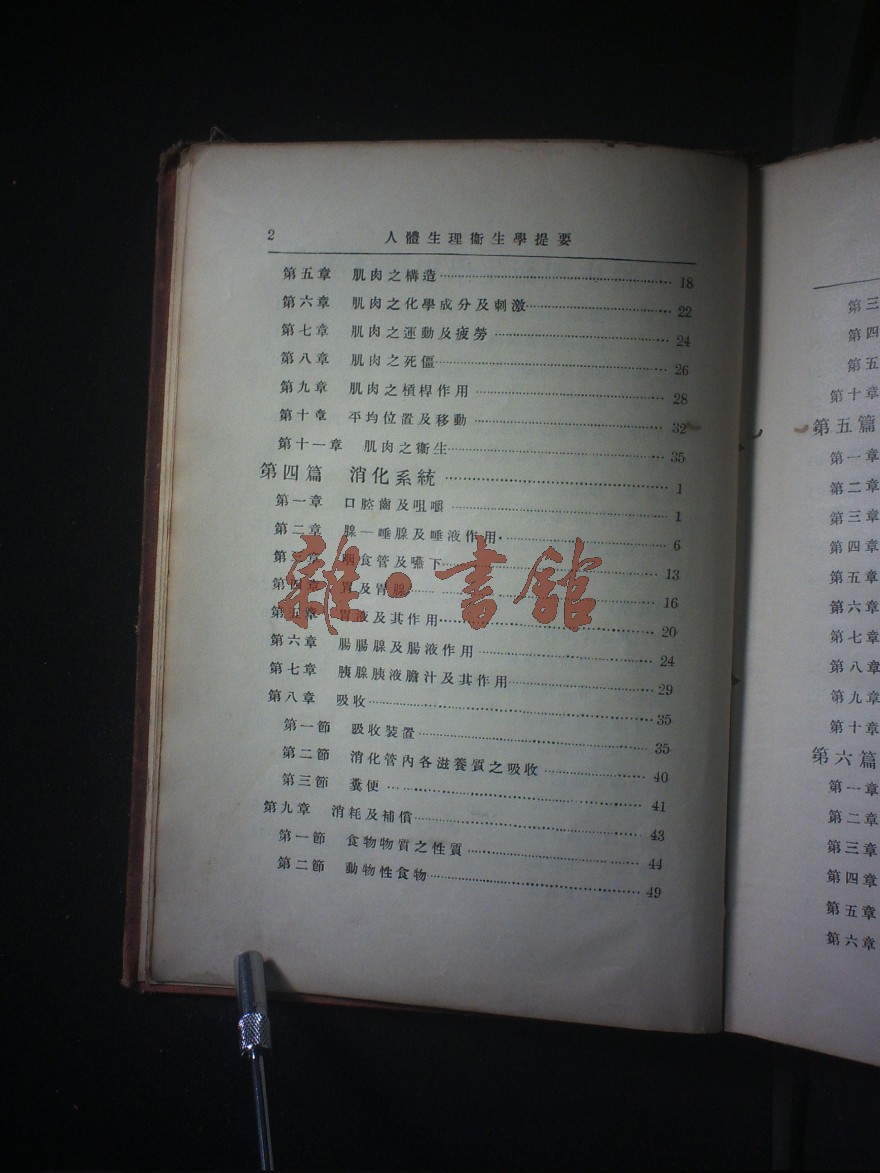 2 人體生理衞生學提要
第五章 肌肉之構造 18
第六章 肌肉之化學成分及刺激 22
第七章 肌肉之運動及疲勞 24
第八章 肌肉之死僵 26
第九章 肌肉之槓桿作用 28
第十章 平均位置及移動 32
第十一章 肌肉之衞生 35
第四篇 消化系統 1
第一章 口腔齒及咀嚼 1
第二章 腺—唾腺及唾液作用 6
第三章 咽食管及嚥下 13
第四章 胃及胃腺 16
第五章 胃液及其作用 20
第六章 腸腸腺及腸液作用 24
第七章 胰腺胰液膽汁及其作用 29
第八章 吸收 35
第一節 吸收裝置 35
第二節 消化管內各滋養質之吸收 40
第三節 糞便 41
第九章 消耗及補償 43
第一節 食物物質之性質 44
第二節 動物性食物 49
雜·書館
第三
第四
第五
第十章
第五篇
第一章
第二章
第三章
第四章
第五章
第六章
第七章
第八章
第九章
第十章
第六篇
第一章
第二章
第三章
第四章
第五章
第六章